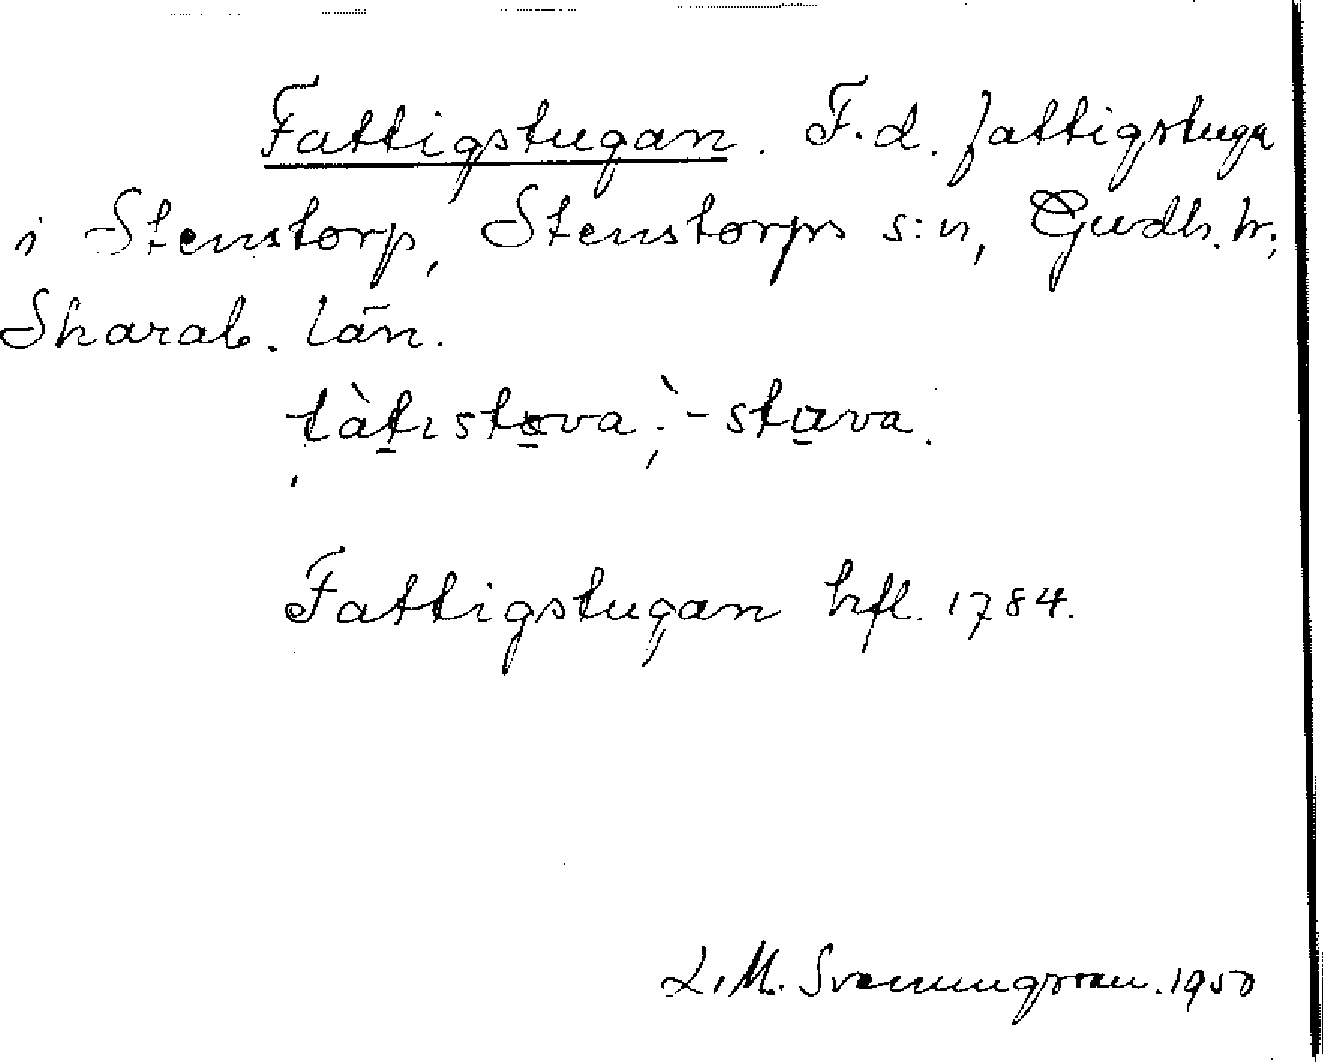 Fattigstugan. F.d. fattigstuga
i Stenstorp, Stenstorps s:n, Gudh. hr;
Skarab. län.
Fattigstugan hfl. 1784.
L.M. Svenungsson. 1950